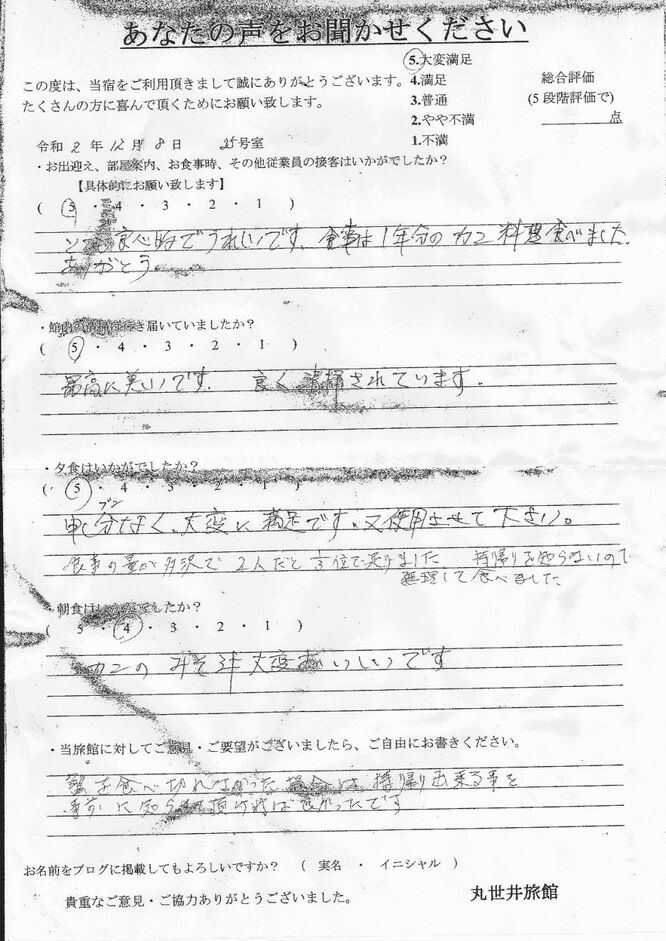 あなたの声をお聞かせください
この度は、当宿をご利用頂きまして誠にありがとうございます。
たくさんの方に喜んで頂くためにお願い致します。
5.大変満足
4.満足
3.普通
2.やや不満
1.不満
総合評価
(5段階評価で)
点
令和 2 年 12 月 8 日 25号室
・お出迎え、部屋案内、お食事時、その他従業員の接客はいかがでしたか?
【具体的にお願い致します】
( 5 ・ 4 ・ 3 ・ 2 ・ 1 )
良心的でうれしいです、食事は1年分のカニ料理食べました
ありがとう。
・館内の清掃は行き届いていましたか?
( 5 ・ 4 ・ 3 ・ 2 ・ 1 )
最高に美しいです。 良く清掃されています。
・夕食はいかがでしたか?
( 5 ・ 4 ・ 3 ・ 2 ・ 1 )
ブン
申し分なく、大変に満足です。又使用させて下さい。
食事の量が多沢で 2人だと 3位で足りました 持帰りを知らないので
無理して食べました
・朝食はいかがでしたか?
( 5 ・ 4 ・ 3 ・ 2 ・ 1 )
カニの みそ汁 大変おいしいです
・当旅館に対してご意見・ご要望がございましたら、ご自由にお書きください。
蟹を食べ切れなかった場合は、持帰り出来る事を
事前に知らせ頂ければ良かったです
お名前をブログに掲載してもよろしいですか? ( 実名 ・ イニシャル )
貴重なご意見・ご協力ありがとうございました。
丸世井旅館